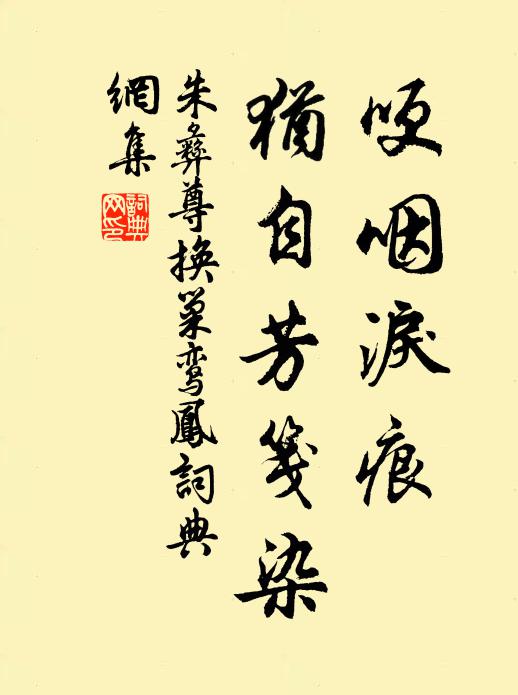 哽咽淚痕
猶自芳箋染
朱彝尊換巢鸾鳳詞典
網集
詞典
网印